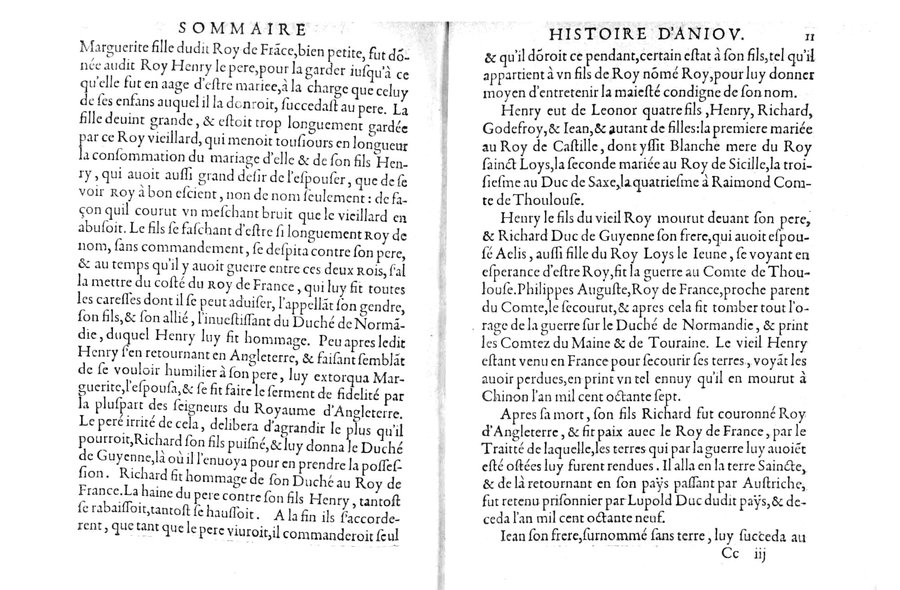 SOMMAIRE
Marguerite fille dudit Roy de Frãce,bien petite, fut dõ-
née audit Roy Henry le pere,pour la garder iuſqu'à ce
qu'elle fut en aage d'eſtre mariee,à la charge que celuy
de ſes enfans auquel il la donroit, ſuccedaſt au pere. La
fille deuint grande, & eſtoit trop longuement gardée
par ce Roy vieillard, qui menoit touſiours en longueur
la conſommation du mariage d'elle & de ſon fils Hen-
ry, qui auoit auſſi grand deſir de l'eſpouſer, que de ſe
voir ROY à bon eſcient, non de nom ſeulement : de fa-
çon quil courut vn meſchant bruit que le vieillard en
abuſoit. Le fils ſe faſchant d'eſtre ſi longuement ROY de
nom, ſans commandement, ſe deſpita contre ſon pere,
& au temps qu'il y auoit guerre entre ces deux ROIS, ſ'al
la mettre du coſté du ROY de France, qui luy fit toutes
les careſſes dont il ſe peut aduiſer, l'appellãt ſon gendre,
ſon fils,& ſon allié, l'inueſtiſſant du Duché de Normã-
die, duquel Henry luy fit hommage. Peu apres ledit
Henry ſ'en retournant en Angleterre, & faiſant ſemblãt
de ſe vouloir humilier à ſon pere, luy extorqua Mar-
guerite,l'eſpouſa,& ſe fit faire le ſerment de fidelité par
la pluſpart des ſeigneurs du Royaume d'Angleterre.
Le peré irrité de cela, delibera d'agrandir le plus qu'il
pourroit,Richard ſon fils puiſné,& luy donna le Duché
de Guyenne,là où il l'enuoya pour en prendre la poſſeſ-
ſion. Richard fit hommage de ſon Duché au Roy de
France.La haine du pere contre ſon fils Henry, tantoſt
ſe rabaiſſoit,tantoſt ſe hauſſoit. A la fin ils ſ'accorde-
rent, que tant que le pere viuroit,il commanderoit ſeul
HISTOIRE D'ANIOV. 11
& qu'il dõroit ce pendant,certain eſtat à ſon fils,tel qu'il
appartient à vn fils de Roy nõmé Roy,pour luy donner
moyen d'entretenir la maieſté condigne de ſon nom.
Henry eut de Leonor quatre fils ,Henry, Richard,
Godefroy,& Iean,& autant de filles:la premiere mariée
au Roy de Caſtille, dont yſſit Blanche mere du Roy
ſainct Loys,la ſeconde mariée au Roy de Sicille,la troi-
ſieſme au Duc de Saxe,la quatrieſme à Raimond Com-
te de Thoulouſe.
Henry le fils du vieil Roy mourut deuant ſon pere,
& Richard Duc de Guyenne ſon frere,qui auoit eſpou-
ſé Aelis, auſſi fille du Roy Loys le Ieune, ſe voyant en
eſperance d'eſtre Roy,fit la guerre au Comte de Thou-
louſe.Philippes Auguſte,Roy de France,proche parent
du Comte,le ſecourut,& apres cela fit tomber tout l'o-
rage de la guerre ſur le Duché de Normandie, & print
les Comtez du Maine & de Touraine. Le vieil Henry
eſtant venu en France pour ſecourir ſes terres, voyãt les
auoir perdues,en print vn tel ennuy qu'il en mourut à
Chinon l'an mil cent octante ſept.
Apres ſa mort, ſon fils Richard fut couronné Roy
d'Angleterre, & fit paix auec le Roy de France, par le
Traitté de laquelle,les terres qui par la guerre luy auoiẽt
eſté oſtées luy furent rendues. Il alla en la terre Saincte,
& de là retournant en ſon paÿs paſſant par Auſtriche,
fut retenu priſonnier par Lupold Duc dudit paÿs,& de-
ceda l'an mil cent octante neuf.
Iean ſon frere,ſurnommé ſans terre, luy ſucceda au
Cc iij